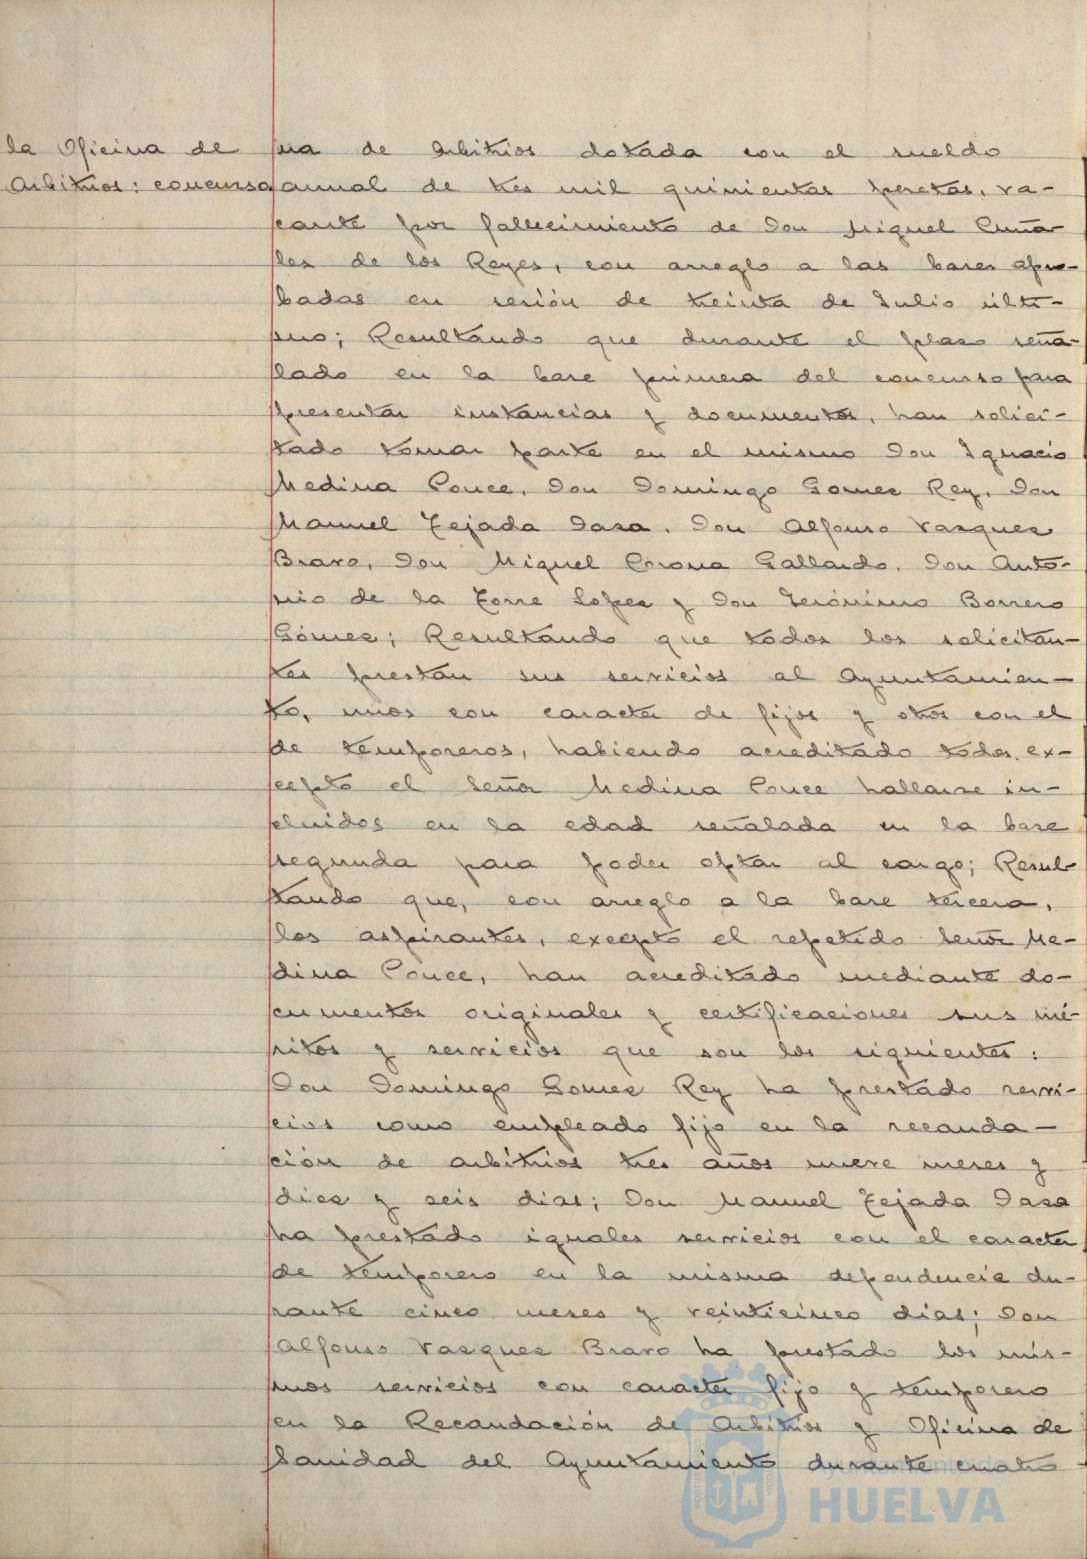 la Oficina de
Arbitrios: concurso
na de Arbitrios dotada con el sueldo
anual de tres mil quinientas pesetas, va-
cante por fallecimiento de Don Miguel Cuña-
les de los Reyes, con arreglo a las bases apro-
badas en sesión de treinta de Julio últi-
mo; Resultando que durante el plazo seña-
lado en la base primera del concurso para
presentar instancias y documentos, han solici-
tado tomar parte en el mismo Don Ignacio
Medina Ponce, Don Domingo Gomez Rey, Don
Manuel Tejada Dasa, Don Alfonso Vazquez
Bravo, Don Miguel Corona Gallardo, Don Anto-
nio de la Torre Lopez y Don Jerónimo Borrero
Gómez; Resultando que todos los solicitan-
tes prestan sus servicios al Ayuntamien-
to, unos con caracter de fijos y otros con el
de temporeros, habiendo acreditado todos, ex-
cepto el Señor Medina Ponce hallarse in-
cluidos en la edad señalada en la base
segunda para poder optar al cargo; Resul-
tando que, con arreglo a la base tercera,
los aspirantes, excepto el repetido Señor Me-
dina Ponce, han acreditado mediante do-
cumentos originales y certificaciones sus mé-
ritos y servicios que son los siguientes:
Don Domingo Gomez Rey ha prestado servi-
cios como empleado fijo en la recauda-
ción de arbitrios tres años nueve meses y
diez y seis dias; Don Manuel Tejada Dasa
ha prestado iguales servicios con el caracter
de temporero en la misma dependencia du-
rante cinco meses y veinticinco dias; Don
Alfonso Vazquez Bravo ha prestado los mis-
mos servicios con caracter fijo y temporero
en la Recaudación de Arbitrios y Oficina de
Sanidad del Ayuntamiento durante cuatro
Ayuntamiento de
HUELVA